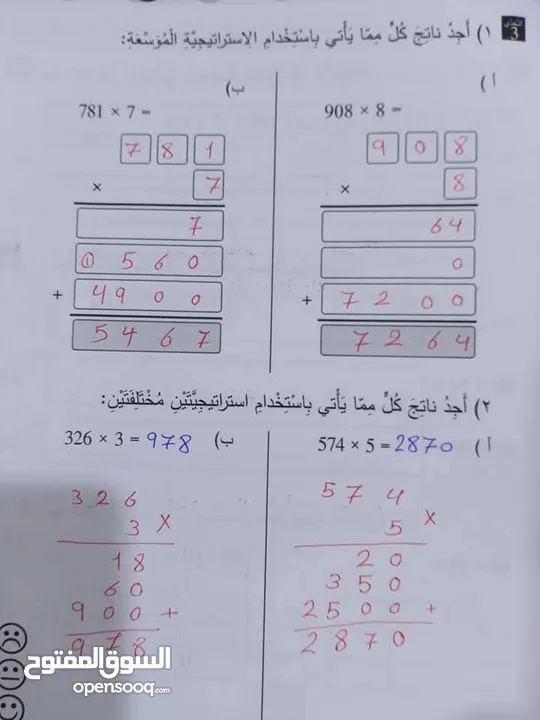 التحدي 3 ١) أَجِدُ ناتِجَ كُلٍّ مِمّا يَأْتي بِاسْتِخْدامِ الِاستراتيجِيَّةِ الْمُوَسَّعَةِ:
أ)
908 × 8 =
9 0 8
× 8
64
0
+ 7 2 0 0
7 2 6 4
ب)
781 × 7 =
7 8 1
× 7
7
① 5 6 0
+ 4 9 0 0
5 4 6 7
٢) أَجِدُ ناتِجَ كُلٍّ مِمّا يَأْتي بِاسْتِخْدامِ استراتيجِيَّتَيْنِ مُخْتَلِفَتَيْنِ:
أ) 574 × 5 = 2870
5 7 4
5 ×
2 0
3 5 0
2 5 0 0 +
2 8 7 0
ب) 326 × 3 = 978
3 2 6
3 ×
1 8
6 0
9 0 0 +
9 7 8
السوق المفتوح
opensooq.com